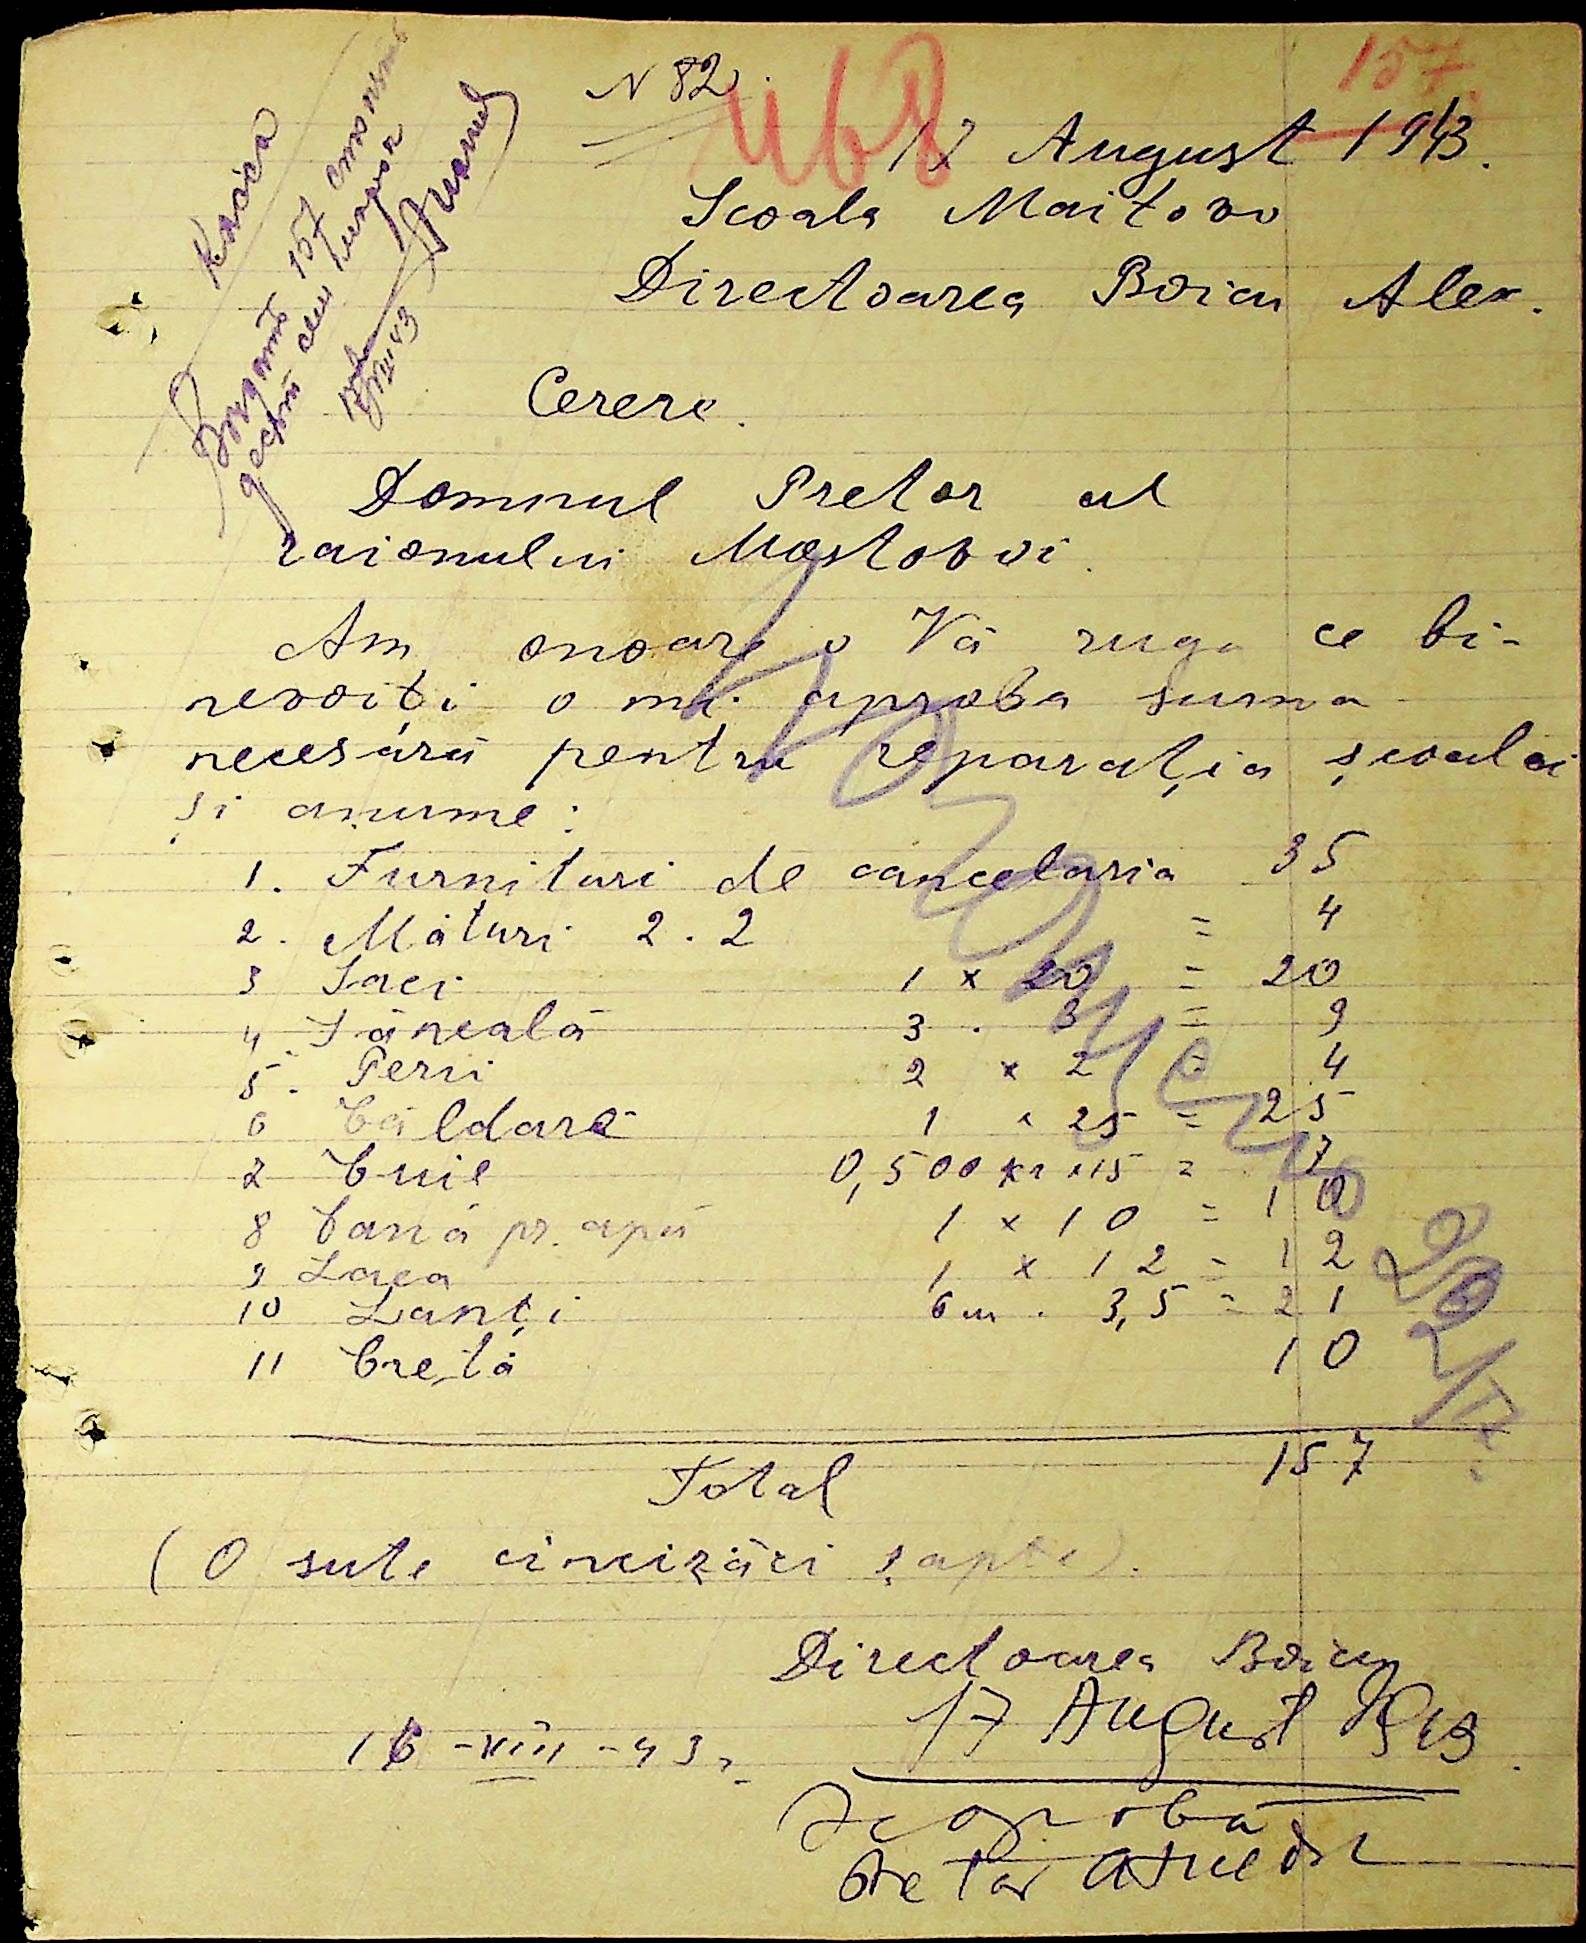 N 82
468
157
17 August 1943.
Scoala Maitovo
Directoarea Boicu Alex.
Касса
157
VIII 43
Cerere.
Domnul Pretor al
raionului Mostovoi.
Am onoare a Vă ruga ce bi-
nevoiți a mi aproba suma
necesără pentru reparația școalei
și anume:
1. Furnituri de cancelaria 35
2. Mături 2 . 2 = 4
3 Saci 1 x 20 = 20
4. Săneală 3 . 3 = 9
5. Perii 2 x 2 = 4
6 Căldare 1 x 25 = 25
7 Cuie 0,500 x 15 = 7
8 Cană pr. apă 1 x 10 = 10
9 Laca 1 x 12 = 12
10 Lanți 6 m . 3,5 = 21
11 Cretă 10
Total 157
(O sute cincizăci șapte).
Directoarea Boicu
17 August 1943
16 -VIII -43
Se aprobă
Pretor